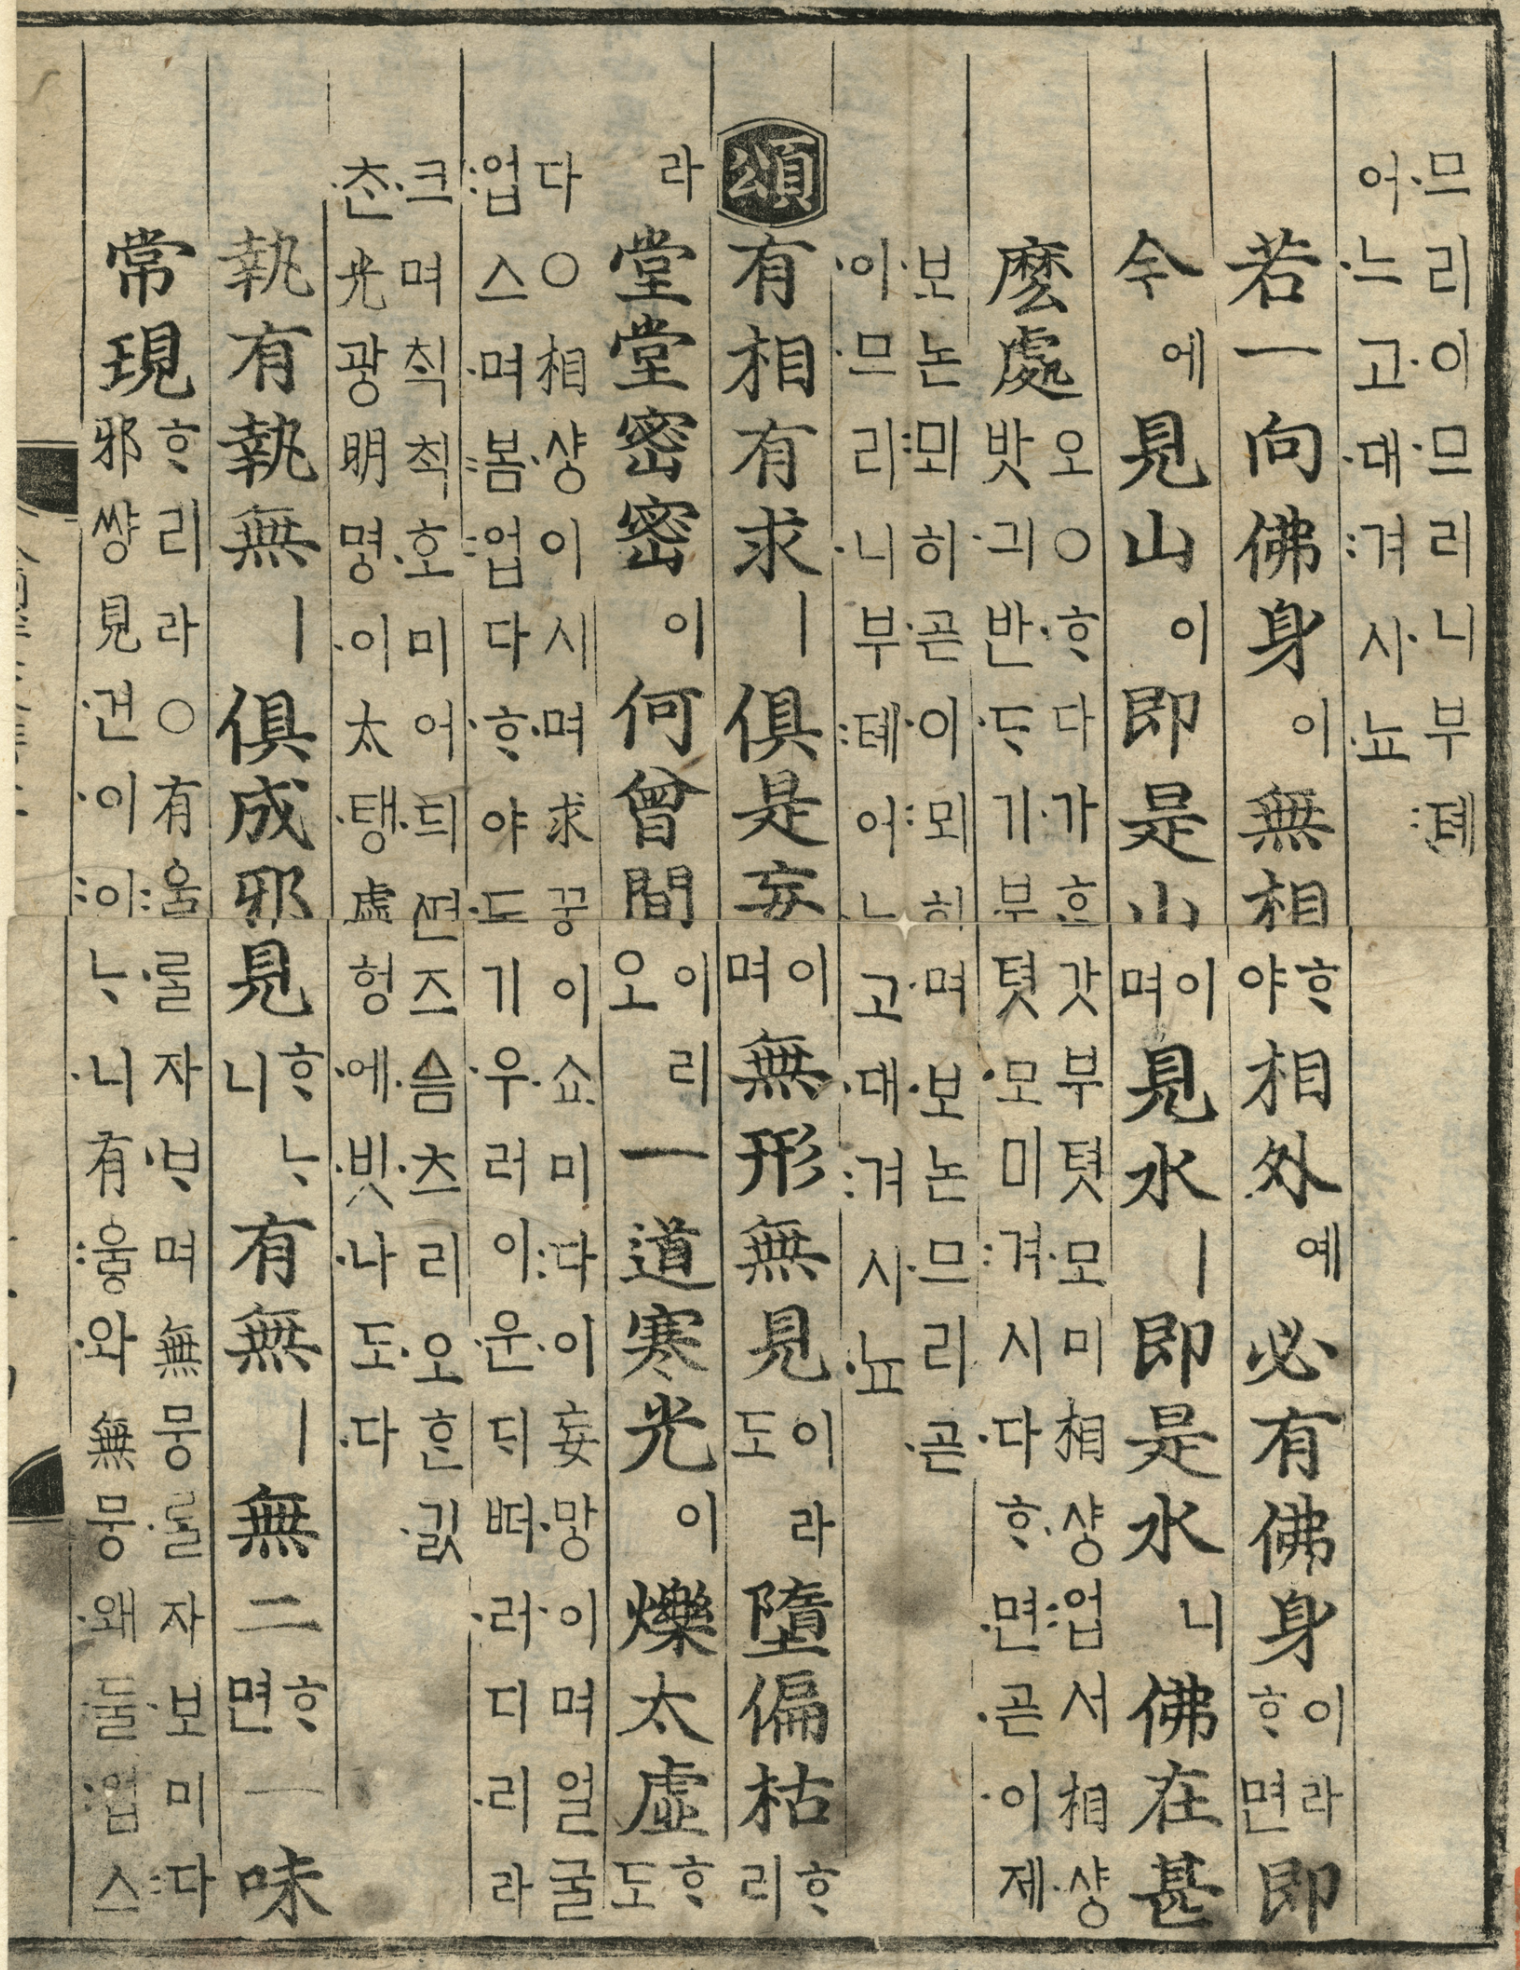 므리이므리니부톄
어느고대겨사뇨
若一向佛身이無相ᄒᆞ야相外예必有佛身이라ᄒᆞ면即
今에見山이即是山이며見水ㅣ即是水니佛在甚
麽處오○ᄒᆞ다가ᄒᆞᆫ갓부텻모미相샹업서相샹
밧긔반ᄃᆞ기부텻모미겨시다ᄒᆞ면곧이제
보논뫼히곧이뫼히며보논므리곧
이므리니부톄어느고대겨사뇨
頌有相有求ㅣ俱是妄이며無形無見이라도墮偏枯ᄒᆞ리
라堂堂密密이何曾間이리오一道寒光이爍太虛ᄒᆞ도
다○相샹이시며求꿍이쇼미다이妄망이며얼굴
업스며봄업다ᄒᆞ야도기우러이운ᄃᆡᄠᅥ러디리라
크며칙칙호미어듸ᄯᅥᆫ즈슴츠리오ᄒᆞᆫ긼
ᄎᆞᆫ光광明명이太탱虛헝에빗나도다
執有執無ㅣ俱成邪見ᄒᆞᄂᆞ니有無ㅣ無二ᄒᆞ면一味
常現ᄒᆞ리라○有우ᇢ롤자ᄇᆞ며無뭉롤자보미다
邪썅見견이이ᄂᆞ니有우ᇢ와無뭉왜둘업스